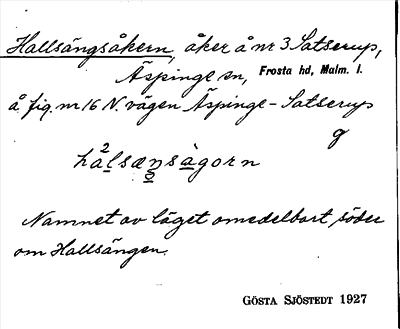 Hallsängsåkern, åker å nr 3 Satserup,
Äspinge sn, Frosta hd, Malm. l.
å fig. nr 16 N. vägen Äspinge - Satserup
g
hal̲sæn̲sa̲gorn
Namnet av läget omedelbart söder
om Hallsängen.
GÖSTA SJÖSTEDT 1927